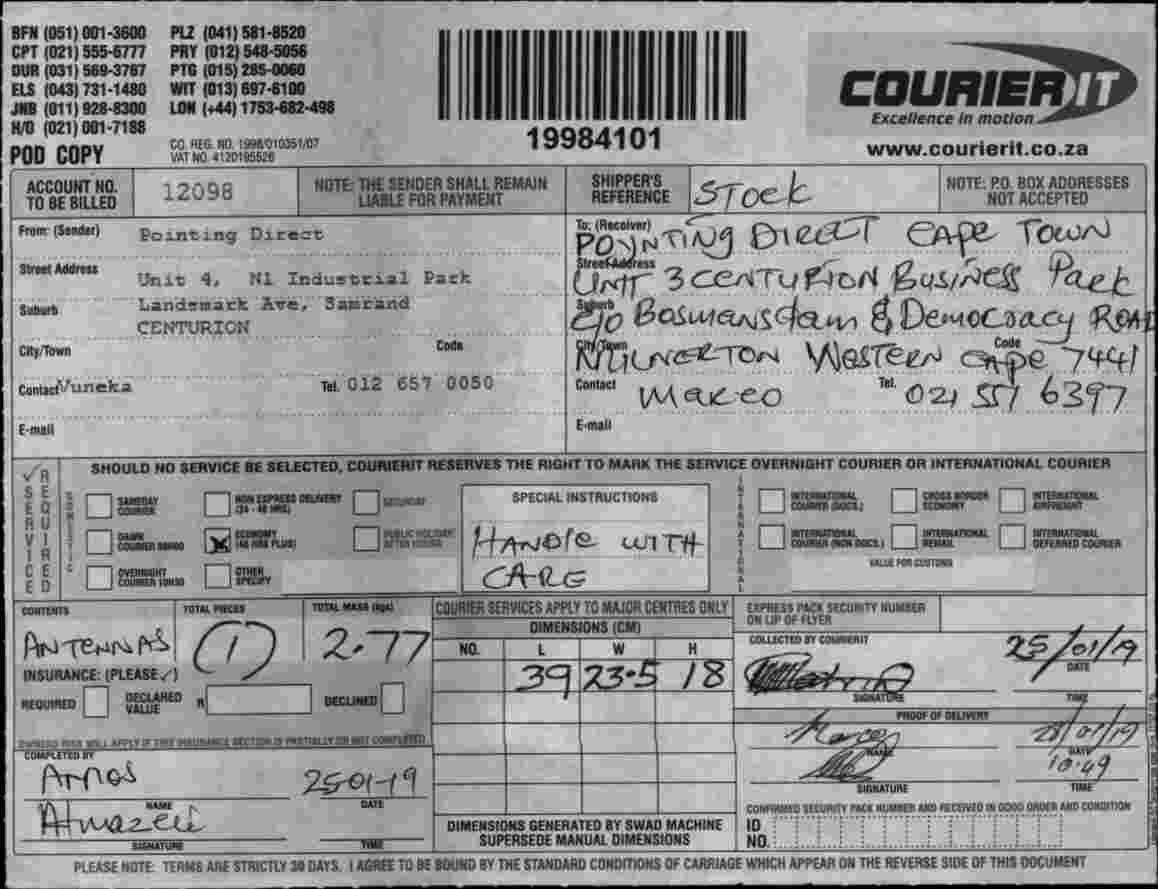 BFN (051) 001-3600 PLZ (041) 581-8520
CPT (021) 555-6777 PRY (012) 548-5056
DUR (031) 569-3767 PTG (015) 285-0060
ELS (043) 731-1480 WIT (013) 697-6100
JNB (011) 928-8300 LON (+44) 1753-682-498
H/O (021) 001-7188
POD COPY
CO. REG. NO. 1998/010351/07
VAT NO. 4120195526
19984101
COURIER IT
Excellence in motion
www.courierit.co.za
ACCOUNT NO. TO BE BILLED 12098
NOTE: THE SENDER SHALL REMAIN LIABLE FOR PAYMENT
SHIPPER'S REFERENCE STOCK
NOTE: P.O. BOX ADDRESSES NOT ACCEPTED
From: (Sender) Pointing Direct
Street Address Unit 4, N1 Industrial Park
Suburb Landsmark Ave, Samrand
CENTURION
City/Town Code
Contact Vuneka Tel. 012 657 0050
E-mail
To: (Receiver) POYNTING DIRECT CAPE TOWN
Street Address UNIT 3 CENTURION BUSINESS PARK
Suburb C/O Bosmansdam & Democracy ROAD
City/Town MILNERTON WESTERN CAPE Code 7441
Contact MARCO Tel. 021 551 6397
E-mail
SERVICE REQUIRED
SHOULD NO SERVICE BE SELECTED, COURIERIT RESERVES THE RIGHT TO MARK THE SERVICE OVERNIGHT COURIER OR INTERNATIONAL COURIER
DOMESTIC
SAMEDAY COURIER
NON EXPRESS DELIVERY (24 - 48 HRS)
SATURDAY
DAWN COURIER 08H00
ECONOMY (48 HRS PLUS)
PUBLIC HOLIDAY AFTER HOURS
OVERNIGHT COURIER 10H30
OTHER SPECIFY
SPECIAL INSTRUCTIONS
HANDLE WITH
CARE
INTERNATIONAL
INTERNATIONAL COURIER (DOCS.)
CROSS BORDER ECONOMY
INTERNATIONAL AIRFREIGHT
INTERNATIONAL COURIER (NON DOCS.)
INTERNATIONAL REMAIL
INTERNATIONAL DEFERRED COURIER
VALUE FOR CUSTOMS
CONTENTS ANTENNAS
TOTAL PIECES (1)
TOTAL MASS (Kgs) 2.77
INSURANCE: (PLEASE ✓)
REQUIRED DECLARED VALUE R DECLINED
OWNERS RISK WILL APPLY IF THIS INSURANCE SECTION IS PARTIALLY OR NOT COMPLETED
COMPLETED BY
Amos 25-01-19
NAME DATE
SIGNATURE TIME
COURIER SERVICES APPLY TO MAJOR CENTRES ONLY
DIMENSIONS (CM)
NO. L W H
39 23.5 18
DIMENSIONS GENERATED BY SWAD MACHINE
SUPERSEDE MANUAL DIMENSIONS
EXPRESS PACK SECURITY NUMBER
ON LIP OF FLYER
COLLECTED BY COURIERIT
25/01/19
SIGNATURE DATE
TIME
PROOF OF DELIVERY
Marco 28/01/19
NAME DATE
10:49
SIGNATURE TIME
CONFIRMED SECURITY PACK NUMBER AND RECEIVED IN GOOD ORDER AND CONDITION
ID NO.
PLEASE NOTE: TERMS ARE STRICTLY 30 DAYS. I AGREE TO BE BOUND BY THE STANDARD CONDITIONS OF CARRIAGE WHICH APPEAR ON THE REVERSE SIDE OF THIS DOCUMENT